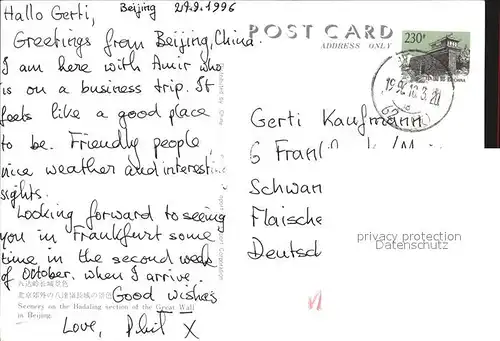 Hallo Gerti,
Beijing 29.9.1996
Greetings from Beijing, China.
I am here with Amir who
is on a business trip. It
feels like a good place
to be. Friendly people,
nice weather and interest.
sights.
Looking forward to seeing
you in Frankfurt some
time in the second week
of October. When I arrive.
Good wishes
Love, Phil X
八达岭长城景色
Scenery on the Badaling section of the Great Wall
in Beijing.
POST CARD
ADDRESS ONLY
230
Gerti Kaufmann
6 Frankf
Schwan
Flaische
Deutsch
privacy protection
Datenschutz